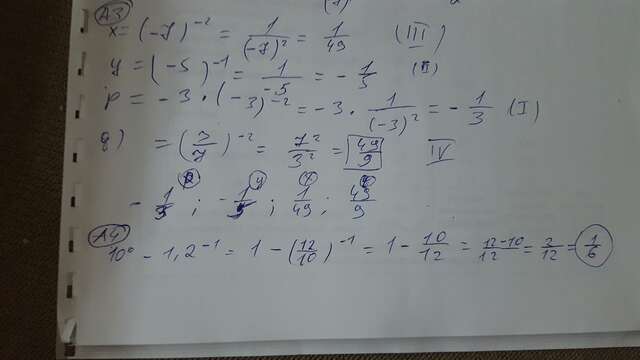 A3
x = (-7)^-2 = 1/(-7)^2 = 1/49 (III)
y = (-5)^-1 = 1/-5 = - 1/5 (II)
p = -3 · (-3)^-2 = -3 · 1/(-3)^2 = - 1/3 (I)
q) = (3/7)^-2 = 7^2/3^2 = 49/9 IV
- 1/3 ; - 1/5 ; 1/49 ; 49/9
A4
10^0 - 1,2^-1 = 1 - (12/10)^-1 = 1 - 10/12 = 12-10/12 = 2/12 = 1/6